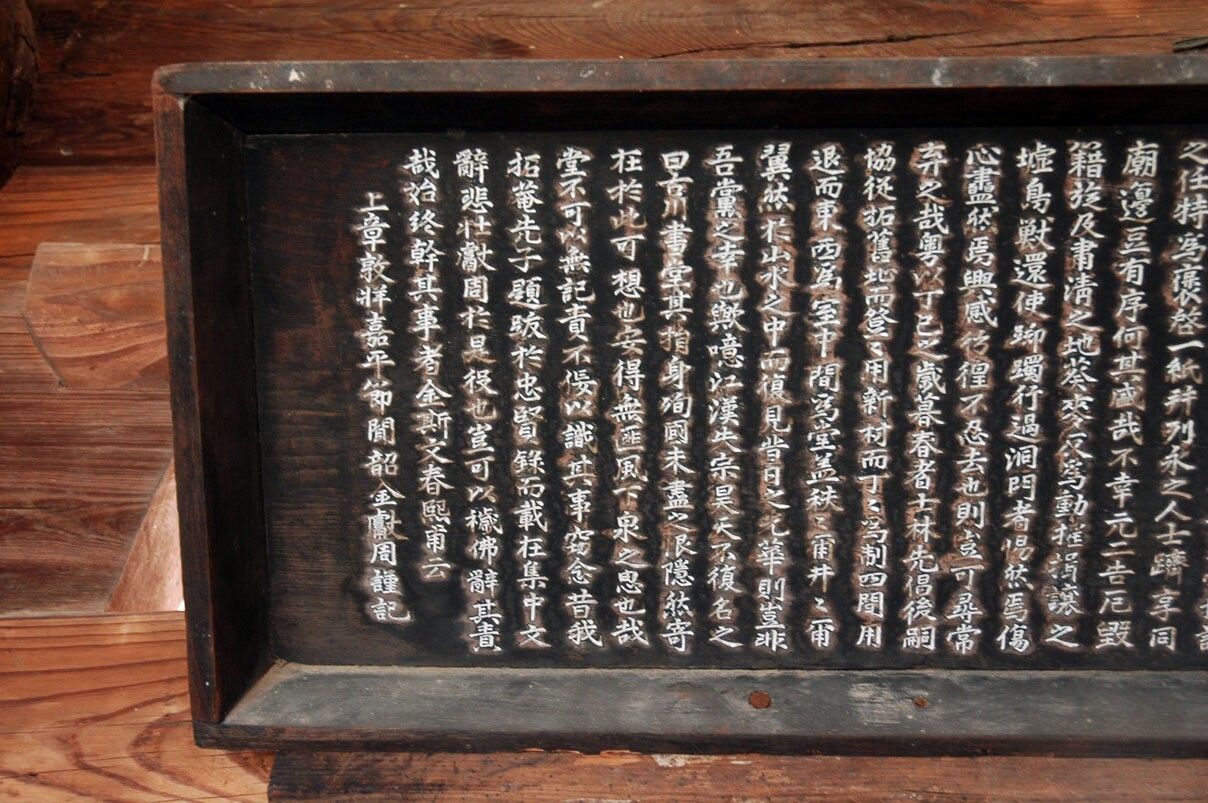 之任特爲褒啓一紙幷列永之人士躋享同
廟邊豆有序何其盛哉不幸元二告厄毁
籍旋及肅淸之地葵麥爲動搖揖讓之
墟鳥獸還使躑躅行過洞門者惕然焉傷
心盡然焉興感彷徨不忍去也則豈可尋常
弃之哉粤以丁巳之歲暮春者士林先倡後嗣
協從拓舊址而簦〻用新材而丁〻爲制四間用
退而東西爲室中間爲堂盖秩〻爾井〻爾
翼然於山水之中而復見昔日之光華則豈非
吾黨之幸也歟噫江漢失宗昊天不復名之
曰吾川書堂其指身殉國未盡之恨隱然寄
在於此可想也安得無匪風下泉之思也哉
堂不可以無記責不佞以識其事窃念昔我
拓菴先子題跋於忠賢錄而載在集中文
辭悲壯獻周於是役也豈可以穢佛辭其責
哉始終幹其事者金斯文春熙甫云
上章敦牂嘉平節聞韶金獻周謹記